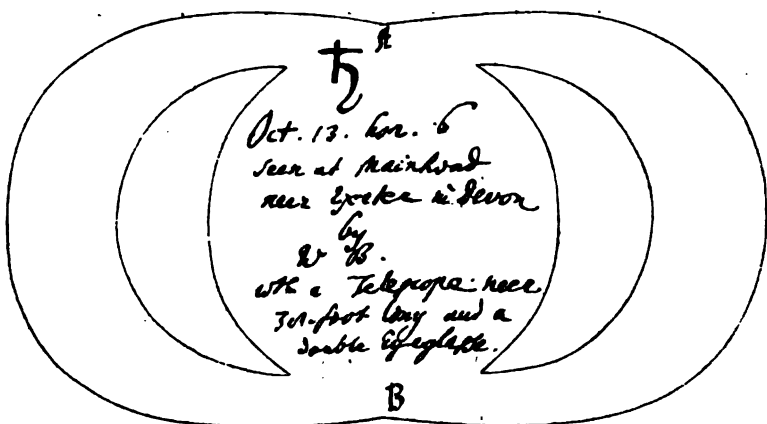 ♄ A
Oct. 13. hor. 6
seen at Mainhead
neer Exeter in Devon
by
W B.
wth a Telescope neer
foot long and a
double Eyeglasse.
B